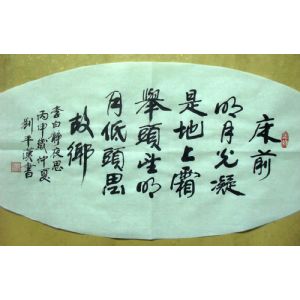 床前
明月光凝
是地上霜
舉頭望明
月低頭思
故鄉
李白靜夜思
丙申歲仲夏
劉平漢書